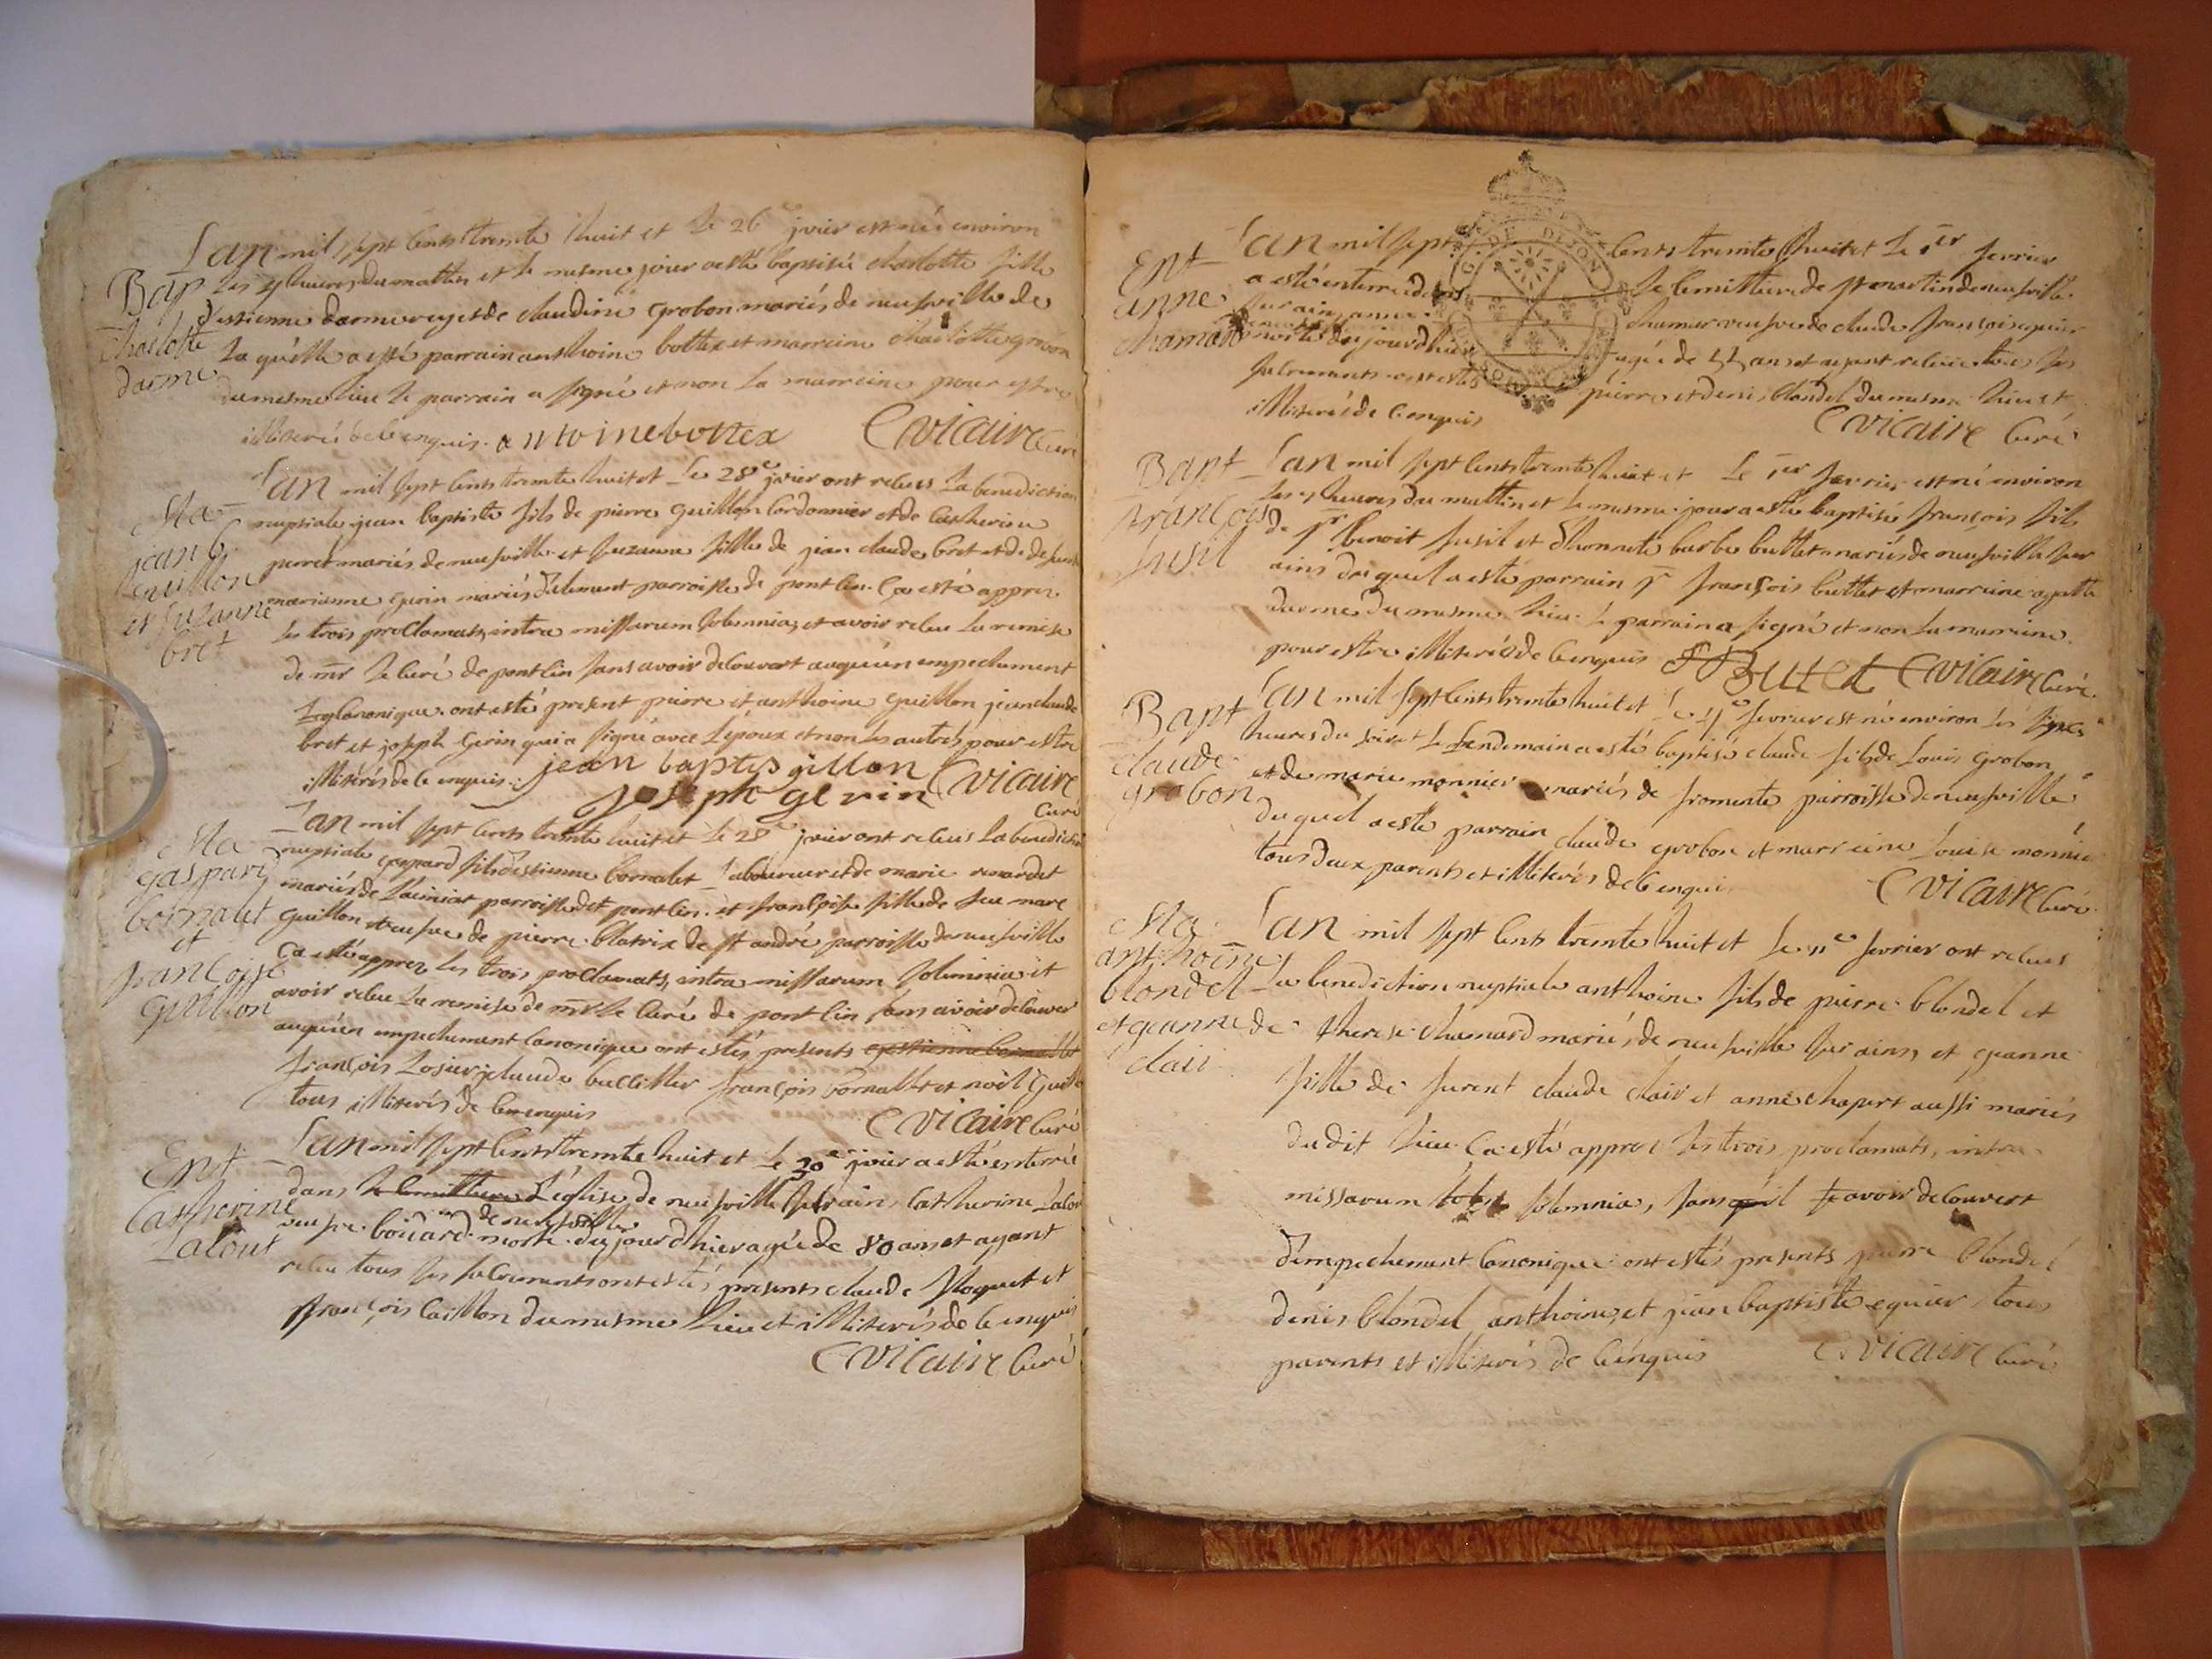 L'an mil sept cents trente huit et le 26e jvier est née environ
Bap
Charlotte
darme
les 4 heures du mattin et le mesme jour a esté baptisée charlotte fille
d'estienne darmerey et de claudine grobon mariés de neufville de
la quelle a esté parrain anthoine bottex et marreine charlotte
du mesme lieu le parrain a signé et non la marreine pour estre
illiterée de ce enquis. antoine bottex C vicaire curé
Ma
jean b.
Guillon
et suzanne
bret
L'an mil sept cents trente huit et le 28e jvier ont receus la benediction
nuptiale jean baptiste fils de pierre guillon cordonnier et de catherine
perret mariés de neufville et suzanne fille de jean claude bret et de
marianne gerin mariés parroisse de pont lin. Ca esté apprez
les trois proclamats, intra missarum solemnia, et avoir receu la remise
de mr le curé de pontlin sans avoir decouvert auqu'un empechement
canonique. ont esté present pierre et anthoine guillon jean claude
bret et joseph gerin qui a signé avec l'époux et non les autres pour estre
illiterés de ce enquis. jean baptis gillon C vicaire
joseph gerin curé
Ma
gaspard
bornalet
et
francoise
guillon
L'an mil sept cents trente huit et le 28e jvier ont receus la benediction
nuptiale gaspard fils d'estienne bornalet laboureur et de marie renardet
mariés de parroisse de pont lin. et françoise fille de feu marc
guillon veufve de pierre blatrix de st andré parroisse de neufville
Ca esté apprez les trois proclamats, intra missarum solemnia et
avoir receu la remise de mr le curé de pont lin sans avoir decouver
auqu'un empechement canonique ont estés presents
françois claude françois bornallet et noël guill
tous illiterés de ce enquis C vicaire curé
Ent
Catherine
Lalout
L'an mil sept cents trente huit et le 30e jvier a esté enterrée
dans le cemittiere l'église de neufville sur ain, catherine
veufve boüard de neufville morte du jour d'hier agée de 80 ans et ayant
receu tous les sacrements ont estés presents claude et
françois caillon du mesme lieu et illiterés de ce enquis
C vicaire curé
Ent
anne
chamard
L'an mil sept cents trente huit et le 1er fevrier
a esté enterrée dans le cemittiere de st martin de neufville
sur ain, anne veufve de claude françois equier
morte du jour d'hier agée de ans et ayant receu tous les
sacrements. ont estés pierre et denis blondel du mesme lieu et
illiterés de ce enquis C vicaire curé
Bapt
françois
fusil
L'an mil sept cents trente huit et le 1er fevrier est né environ
les heures du mattin et le mesme jour a esté baptisé françois fils
de sr benoit fusil et d'honneste barbe buttet mariés de neufville sur
ains du quel a esté parrain sr françois buttet et marreine agathe
darme du mesme lieu. le parrain a signé et non la marreine
pour estre illiterée de ce enquis F Butet C vicaire curé
Bapt
claude
grobon
L'an mil sept cents trente huit et le 4e fevrier est né environ les
heures du soir et le lendemain a esté baptisé claude fils de Louis grobon
et de marie monnier mariés de fromente parroisse de neufville
du quel a esté parrain claude grobon et marreine Louise monnie
tous deux parents et illiterés de ce enquis C vicaire curé
Ma
anthoine
blondel
et jeanne
clair
L'an mil sept cents trente huit et le 11e fevrier ont receus
la benediction nuptiale anthoine fils de pierre blondel et
de therese chamard mariés de neufville sur ains, et jeanne
fille de furent claude clair et anne chapert aussi mariés
du dit lieu Ca esté apprez les trois proclamats, intra
missarum solemnia, sans avoir decouvert
d'empechement canonique ont estés presents pierre blondel
denis blondel anthoine, et jean baptiste equier, tous
parents et illiterés de ce enquis C vicaire curé